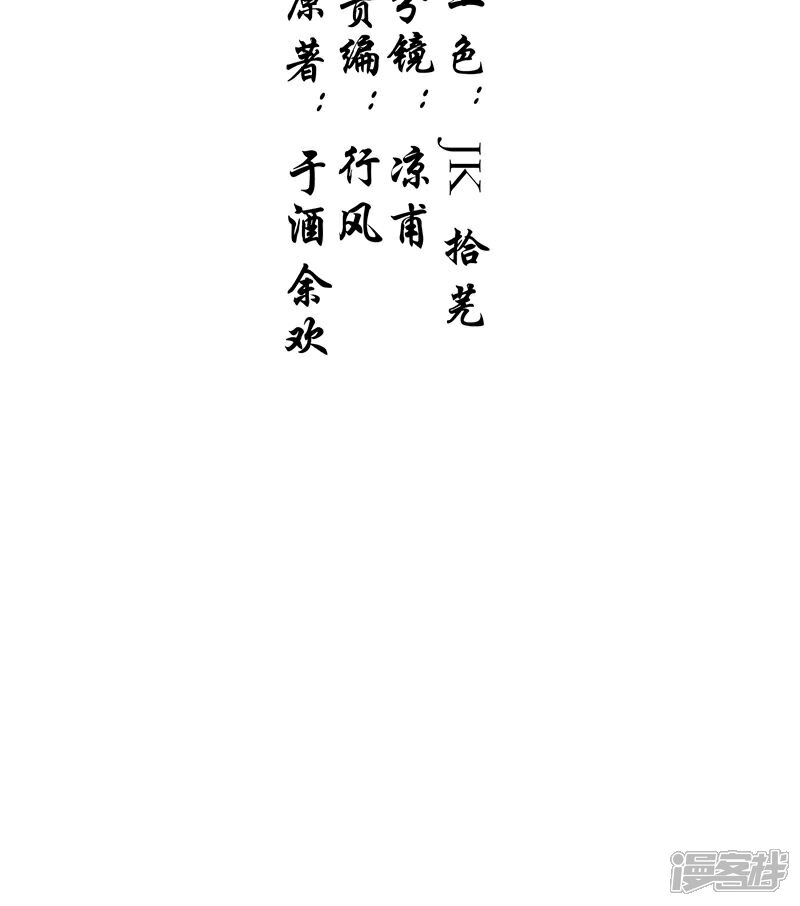 上色：JK 拾芜
分镜：凉甫
责编：行风
原著：于酒余欢
漫客栈